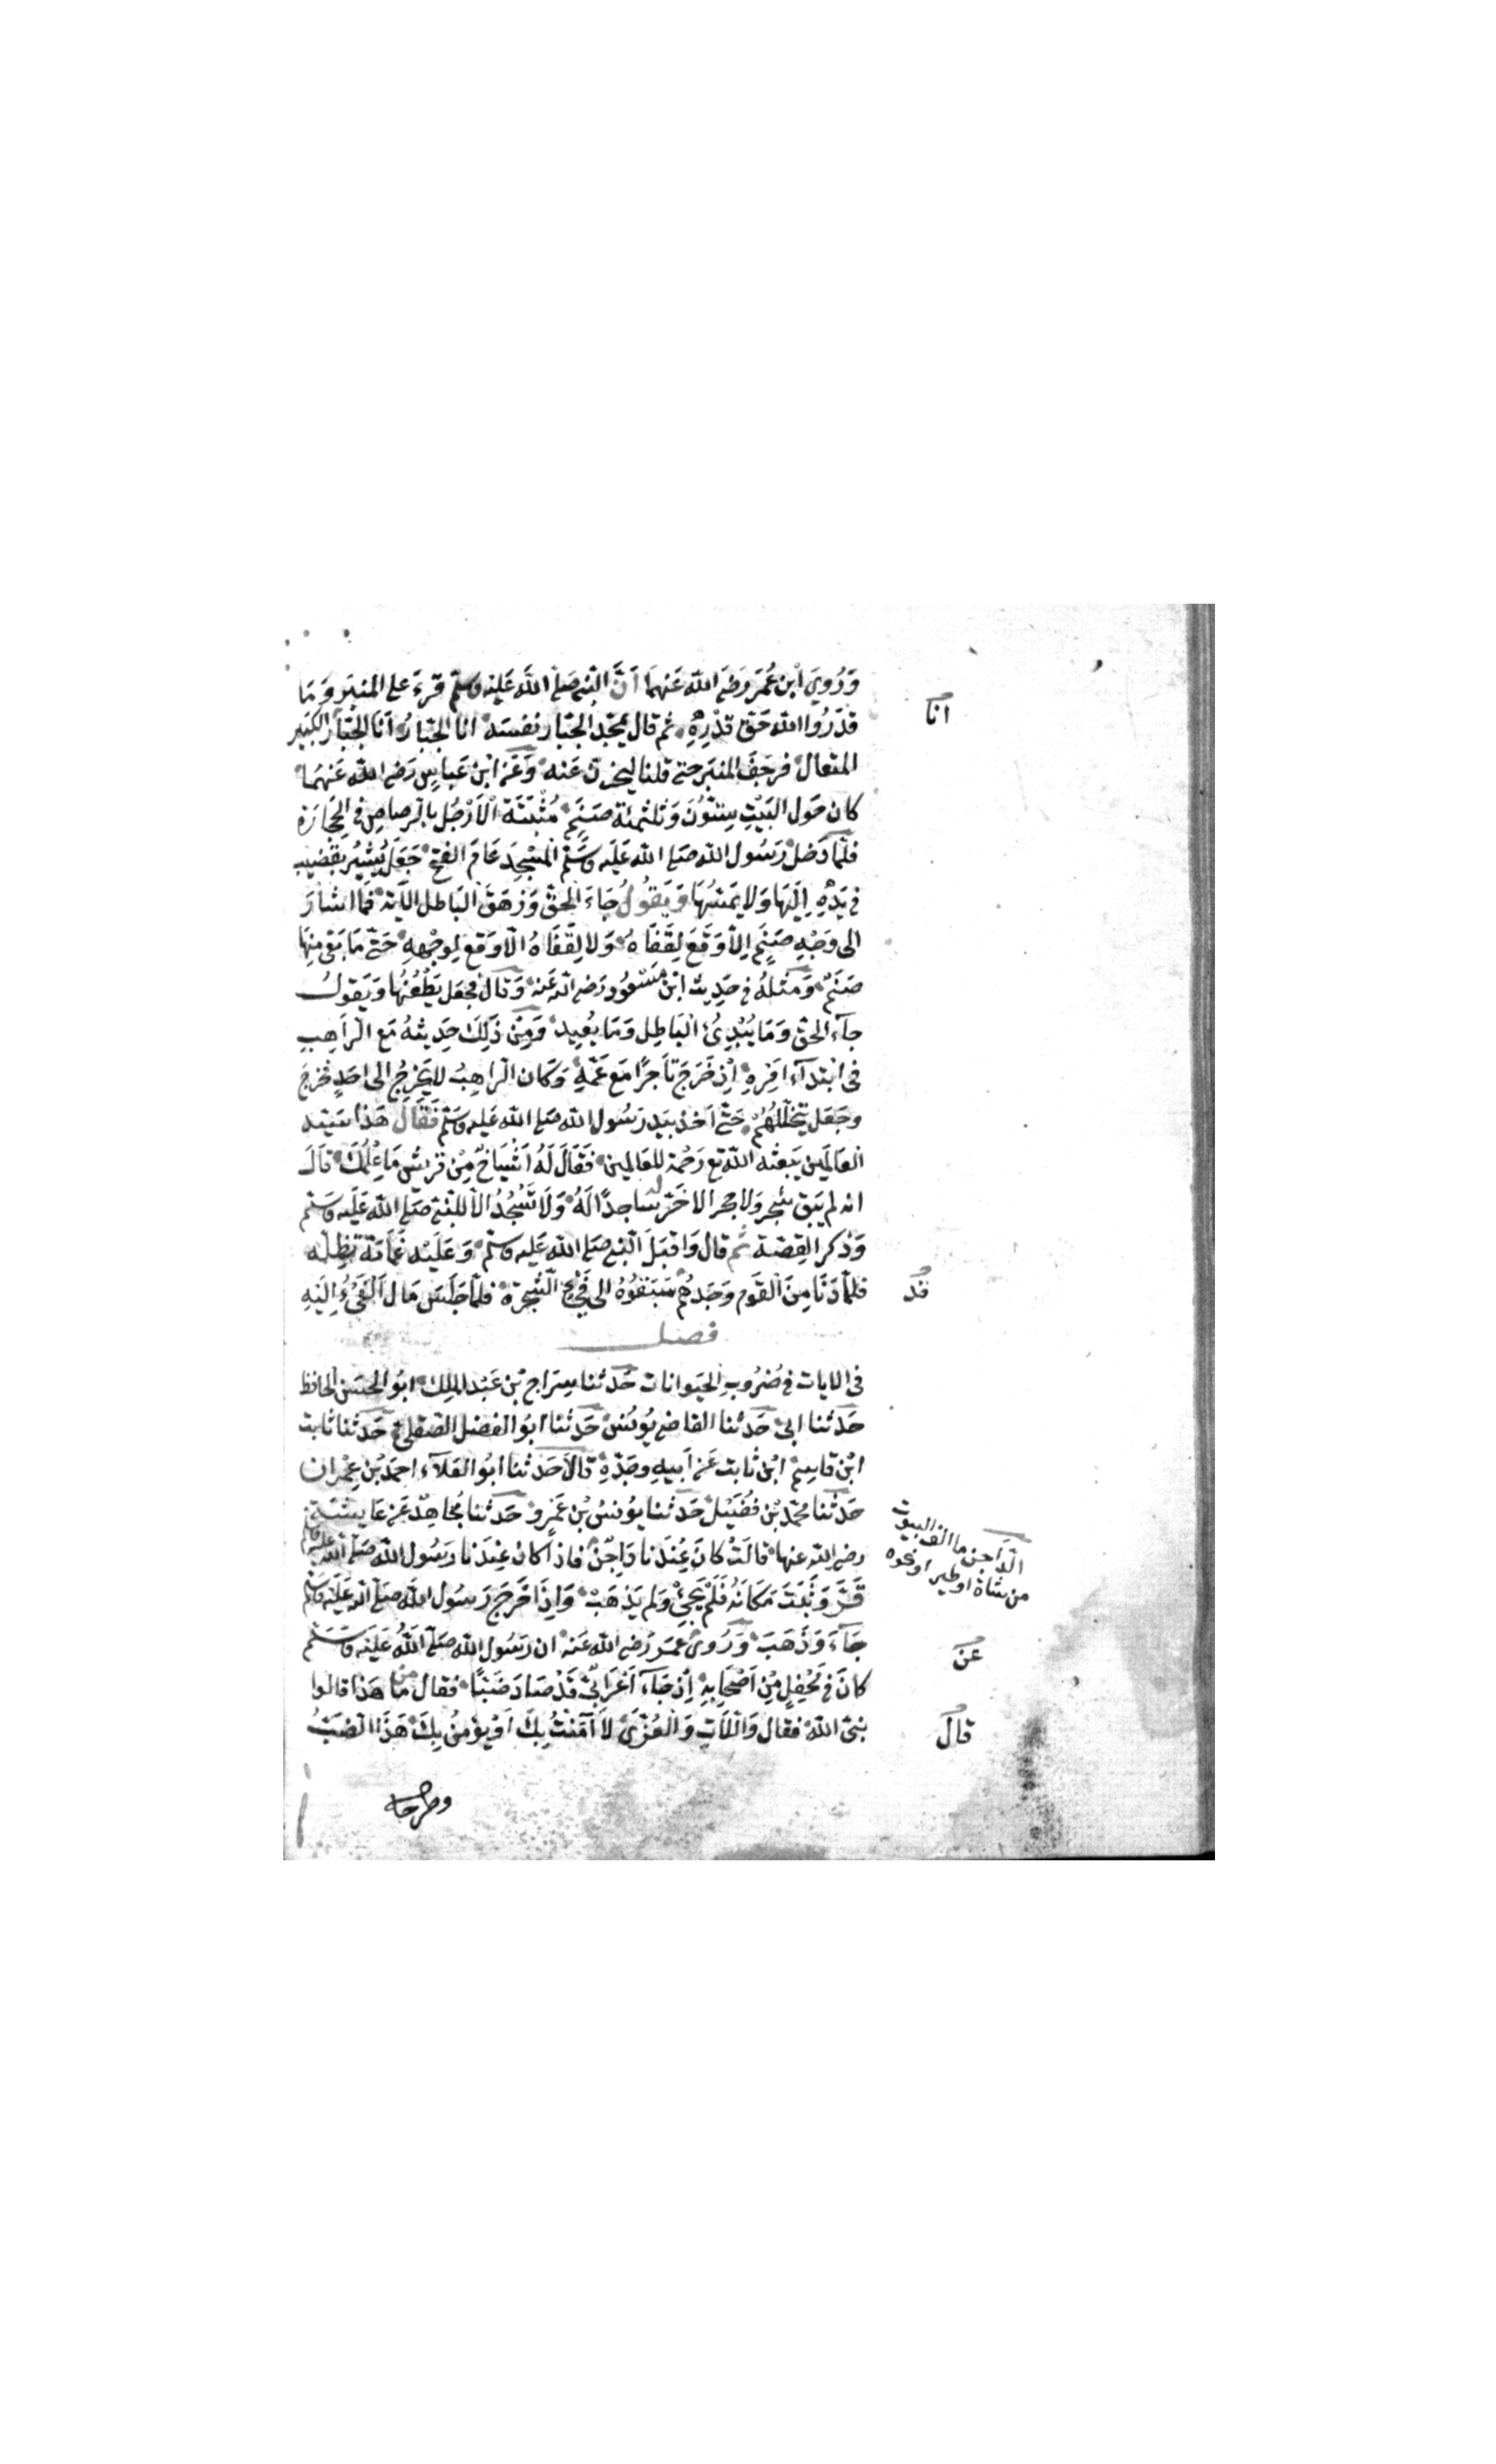 وَرُوِيَ ابْن عُمَر رَضِيَ اللّه عَنهمَا اَنَّ النّبي صَلّى اللّه عَلَيْه وسلّم قرءَ على المنبَر وَمَا
انا
قدَرُوا اللّه حَقّ قَدْرِهِ ثم قال يمجّد الجبّار نفسَه انا الجبّارُ اَنا الجَبّارُ اَنا الكبير
المتعال فرجَفَ المنبَر حتى قلنا ليخرّن عَنه وَعَن ابْن عَبّاسٍ رَضي اللّه عَنهُمَا
كان حَول البَيْتِ سِتّوُنَ وَثلثمئة صَنَمٍ مُثْبَتَة الْاَرْجُل بالرّصاصِ في الحِجَارَة
فلمّا دَخل رَسُول اللّه صَلى اللّه عَلَيه وَسَّلم المَسْجِدَ عَامَ الفتح جَعَل يُشِيْرُ بقضيب
في يَدِهِ اِلَيْهَا وَلا يَمَسّهَا وَيَقوُلُ جَاءَ الحَقّ وَزهَقَ البَاطل الآيَة فما اشارَ
الى وَجْهِ صَنَمٍ اِلاّ وَقَعَ لِقَفَاهُ وَلا لِقَفَاهُ الّا وَقع لِوجْههِ حَتّى مَا بَقى مِنهَا
صَنَمٌ وَمثلهُ في حَدِيث ابْن مَسْعُود رَضي اللّه عَنه وَقالَ فجعَل يَطْعُنُهَا وَيَقولُ
جآءَ الحَقّ وَمَا يُبْدِئُ الْبَاطِل وَمَا يُعِيد وَمِنْ ذَلِكَ حَدِيثهُ مَع الرّاهِبِ
فى ابْتدَآءِ اَمْرِهِ اِذ خَرَجَ تَاجرًا مَع عَمّهِ وَكَان الرّاهِبُ لا يَخرجُ الى احَدٍ فخرَجَ
وجَعَل يتخلّلهُمْ حَتّى اَخَذ بيَدِ رَسُول اللّه صَلى اللّه عَليه وسَلّم فَقَالَ هَذا سَيّد
العَالَمين يَبعثه اللّه تع رَحْمَة للعَالمين فَقَالَ لهُ اَشْيَاخٌ مِنْ قرَيش مَا عِلْمُكَ قالَ
انه لم يَبق شجر وَلا حجر الا خَرّ سَاجدًا لَهُ وَلَا تَسْجُدُ الّا لنبيّ صَلى اللّه عَلَيه وسَلّم
وَذكر القِصَة ثم قال وَاقبَل النّبي صَلى اللّه عَليه وسلّم وَعَلَيْه غمَامَة تظِلّه
قد
فلمّا دَنا مِنَ القوَم وجَدهُمْ سَبَقوُهُ الى فَيْء الشّجَرة فلمّا جَلَسَ مَال الْفَيْءُ اِليْهِ
فصل
فى الايات في ضُرُوبِ الحيَوانات حَدّثنا سِرَاج بْن عَبْد الملِك ابُو الحسَين الحافظ
حَدّثنا ابى حَدّثنا القاضي يوُنسُ حَدّثنا ابُو الفضل الصّقلي حَدّثنا ثابت
ابْن قاسِم ابْن ثابت عَن اَبيهِ وجَدّهِ قالَا حَدّثنا ابُو العَلآء احمَدُ بْن عِمْران
حَدّثنا مُحمّد بْن فُضَيْل حَدّثنا يوُنسُ بْن عَمرو حَدّثنا مُجَاهِدٌ عَن عَايشَةَ
رضي اللّه عنها قالَتْ كانَ عِنْدَنا دَاجِنٌ فاذا كان عِندَنا رَسُول اللّه صَلى اللّه عليه وسلم
الدّاجن ما الف البيوت
من شاة او طير او نحوه
قَرّ وَثَبَتَ مَكَانَهُ فَلَمْ يَجِئْ وَلم يَذهَبْ وَاِذَا خَرجَ رَسُول اللّه صَلى اللّه عَلَيه وسلم
عن
جَآءَ وَذَهَبَ وَرُوىَ عمَر رَضي اللّه عَنه ان رَسُول اللّه صَلى اللّهُ عَلَيْه وَسَلّم
كانَ في مَحْفِلٍ مِنْ اَصْحَابِهِ اِذ جَآءَ اَعْرَابيّ قَدْ صَادَ ضَبّا فقال مَا هَذا قالوا
قال
نبىّ اللّه فقال وَاللّاتِ وَالْعُزّى لا آمَنْتُ بِكَ اَوْ يؤمنُ بِكَ هَذَا الضبّ
وطرحه